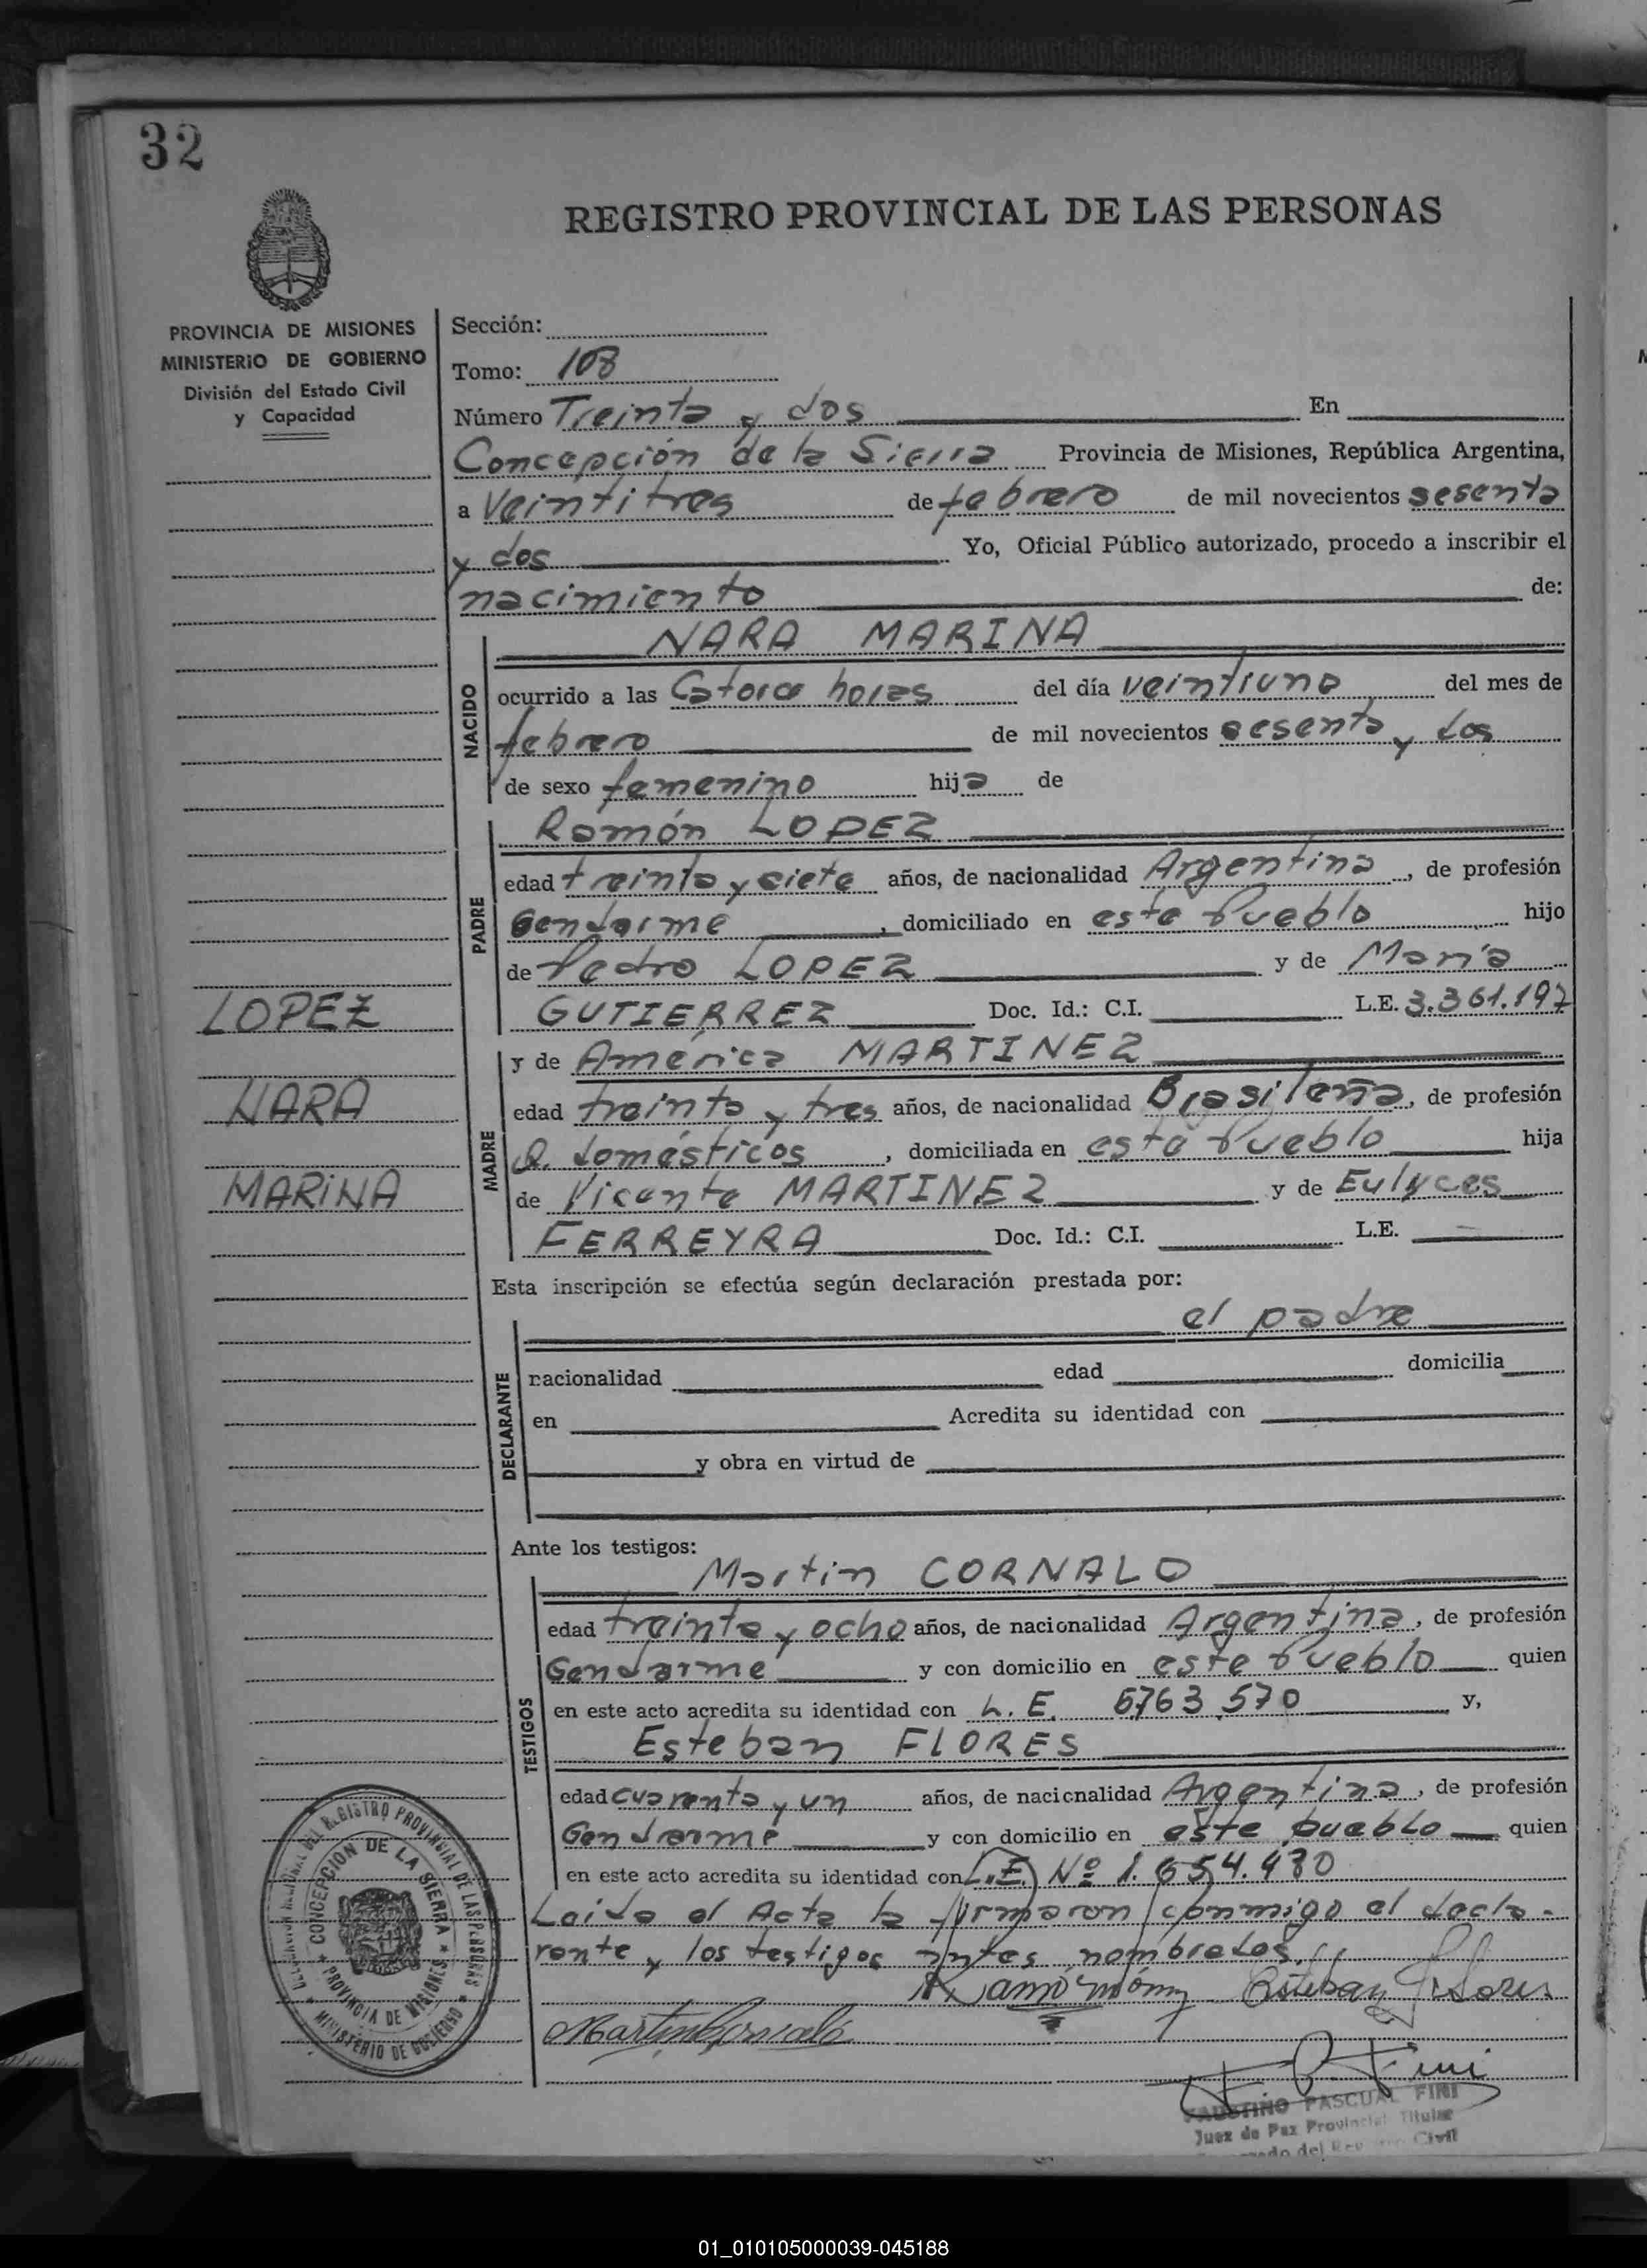 32
REGISTRO PROVINCIAL DE LAS PERSONAS
PROVINCIA DE MISIONES
MINISTERIO DE GOBIERNO
División del Estado Civil
y Capacidad
LOPEZ
NARA
MARINA
Sección:
Tomo: 108
Número Treinta y dos En
Concepción de la Sierra Provincia de Misiones, República Argentina,
a Veintitres de febrero de mil novecientos sesenta
y dos Yo, Oficial Público autorizado, procedo a inscribir el
nacimiento de:
NACIDO
NARA MARINA
ocurrido a las Catorce horas del día veintiuno del mes de
febrero de mil novecientos sesenta y dos
de sexo femenino hija de
PADRE
Ramón LOPEZ
edad treinta y siete años, de nacionalidad Argentina, de profesión
Gendarme, domiciliado en este Pueblo hijo
de Pedro LOPEZ y de María
GUTIERREZ Doc. Id.: C.I. L.E. 3.361.197
MADRE
y de América MARTINEZ
edad treinta y tres años, de nacionalidad Brasileña, de profesión
Q. domésticos, domiciliada en este Pueblo hija
de Vicente MARTINEZ y de Eulyces
FERREYRA Doc. Id.: C.I. L.E.
Esta inscripción se efectúa según declaración prestada por:
DECLARANTE
el padre
nacionalidad edad domicilia
en Acredita su identidad con
y obra en virtud de
Ante los testigos:
TESTIGOS
Martin CORNALO
edad treinta y ocho años, de nacionalidad Argentina, de profesión
Gendarme y con domicilio en este Pueblo quien
en este acto acredita su identidad con L. E. 5763.570 y,
Esteban FLORES
edad cuarenta y un años, de nacionalidad Argentina, de profesión
Gendarme y con domicilio en este pueblo quien
en este acto acredita su identidad con L.E. Nº 1.654.480
Leida el Acta la firmaron conmigo el decla-
rante y los testigos antes nombrados.
Esteban Flores
F. P. Fini
FAUSTINO PASCUAL FINI
Juez de Paz Provincial Titular
del Civil
REGISTRO PROVINCIAL DE LAS PERSONAS
CONCEPCION DE LA SIERRA
PROVINCIA DE MISIONES
MINISTERIO DE GOBIERNO
01_010105000039-045188